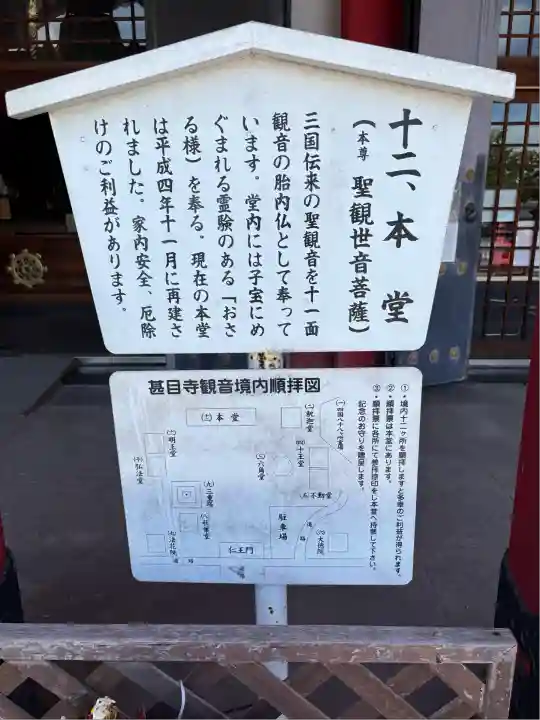 十二、本堂
（本尊 聖観世音菩薩）
三国伝来の聖観音を十一面
観音の胎内仏として奉って
います。堂内には子宝にめ
ぐまれる霊験のある「おさ
る様」を奉る。現在の本堂
は平成四年十一月に再建さ
れました。家内安全、厄除
けのご利益があります。
甚目寺観音境内順拝図
①・境内十二ヶ所を順拝しますと多幸のご利益が得られます。
②・順拝票は本堂にあります。
③・順拝票に各所にて参拝捺印をし本堂へ持参して下さい。
記念のお守りを進呈します。
(一)四国八十八ヶ所霊場
(二)釈迦堂
(三)六角堂
(四)十王堂
(五)不動堂
(六)大徳院
(七)法花院
(九)三重塔
(十)弘法堂
(土)明王堂
(圭)本堂
駐車場
仁王門
道路
道路